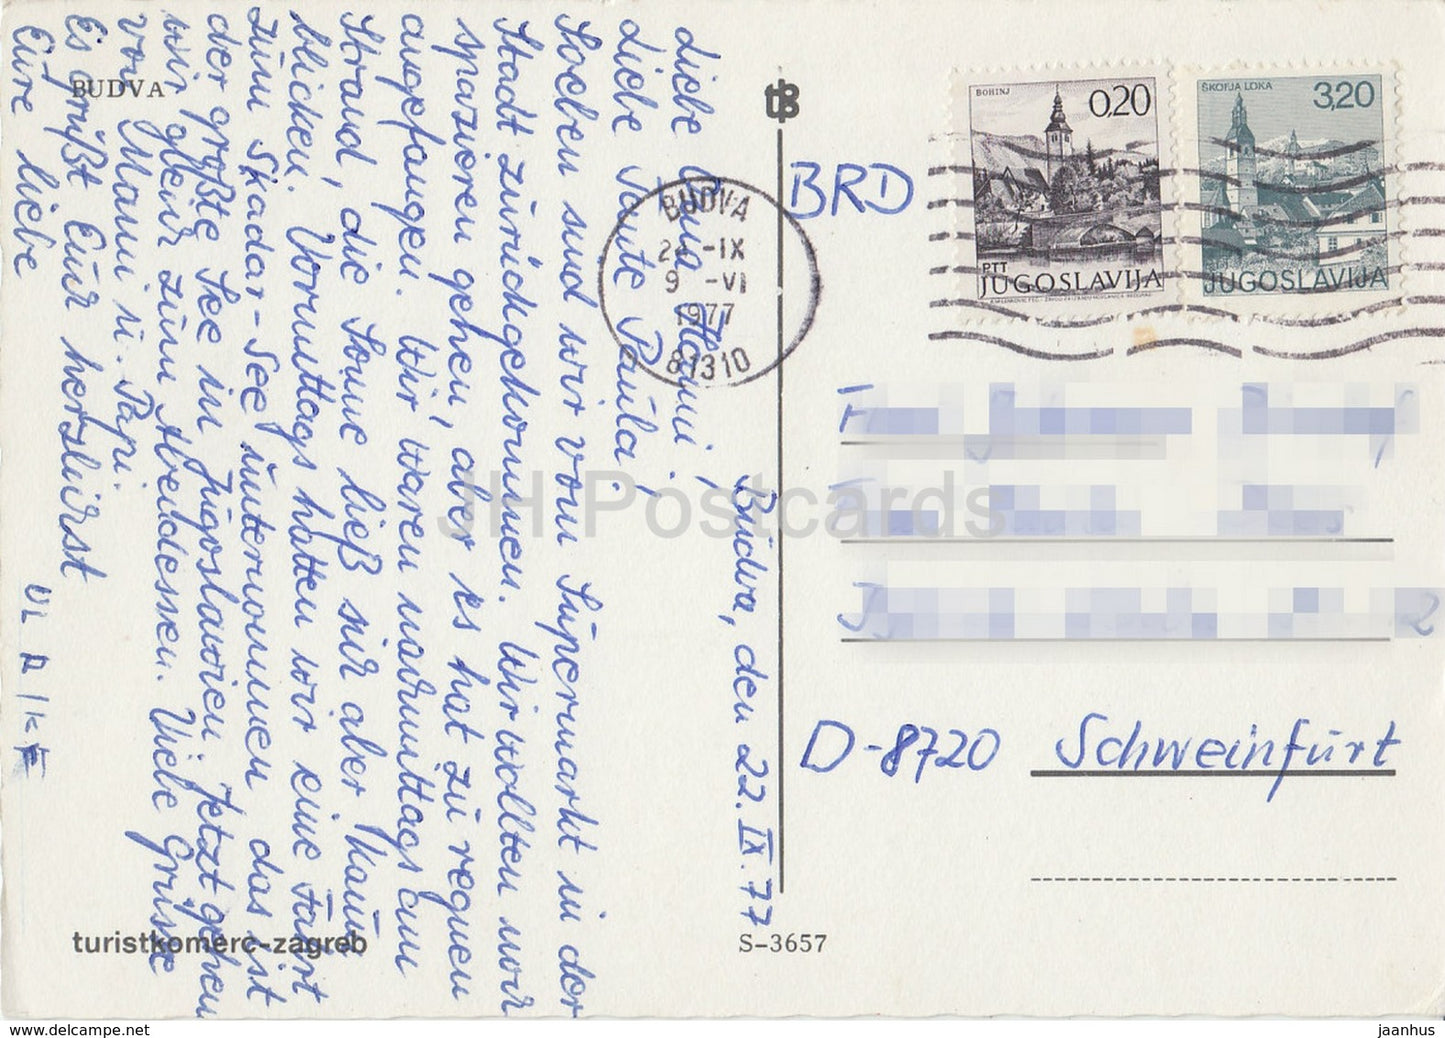 BUDVA
Budva, den 22. IX. 77
Liebe Oma Hanni,
Liebe Tante Paula,
Soeben sind wir vom Supermarkt in der
Stadt zurückgekommen. Wir wollten noch
spazieren gehen, aber es hat zu regnen
angefangen. Wir waren nachmittags am
Strand, die Sonne ließ sich aber kaum
blicken. Vormittags hatten wir eine Fahrt
zum Skadar-See unternommen das ist
der größte See in Jugoslawien. Jetzt gehen
wir gleich zum Abendessen. Viele Grüsse
von Mami u. Papi.
Es grüßt Euch herzlichst
Eure liebe
turistkomerc-zagreb
S-3657
tB
BUDVA
-IX
9 -VI
1977
81310
BOHINJ
0,20
PTT
JUGOSLAVIJA
ŠKOFJA LOKA
3,20
JUGOSLAVIJA
BRD
D-8720 Schweinfurt
JH Postcards
www.delcampe.net
jaanhus